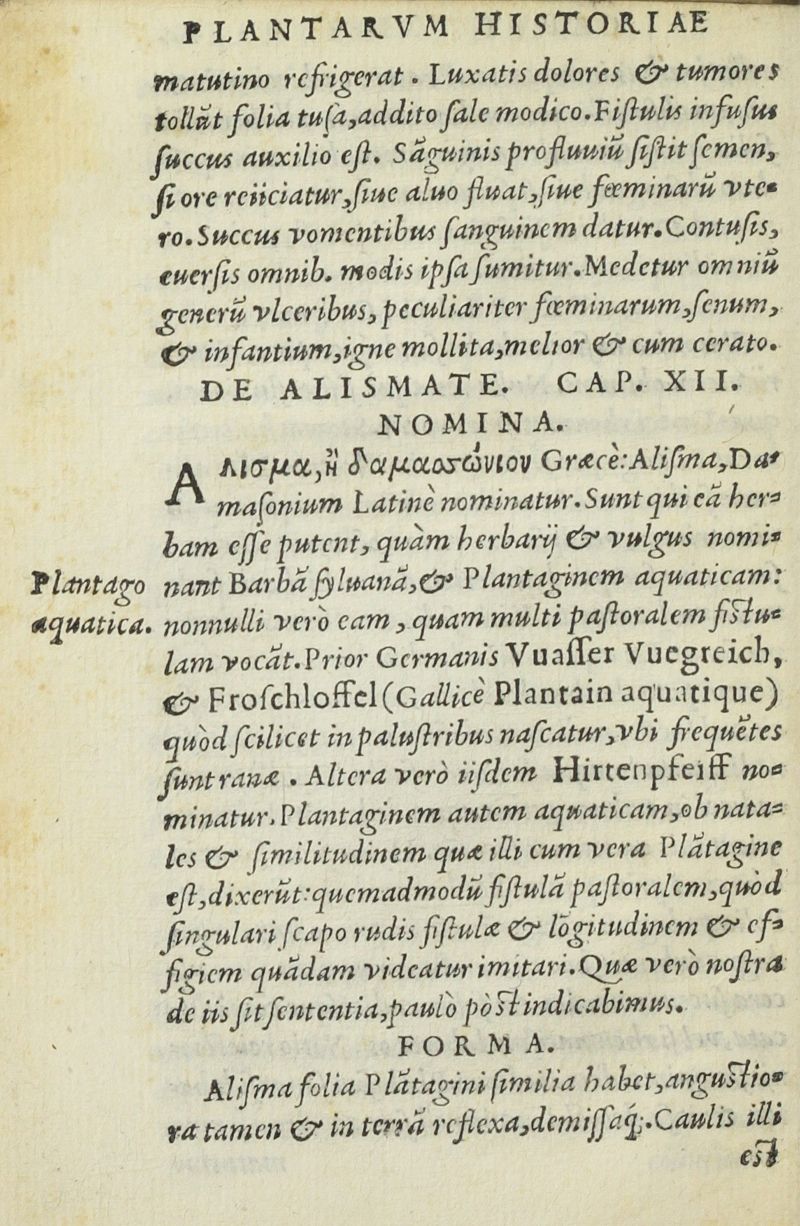 PLANTARVM HISTORIAE
matutino refrigerat. Luxatis dolores & tumores
tollūt folia tuſa, addito ſale modico. Fiſtulis infuſus
ſuccus auxilio eſt. Sāguinis profluuiū ſiſtit ſemen,
ſi ore reiiciatur, ſiue aluo fluat, ſiue fœminarū vte-
ro. Succus vomentibus ſanguinem datur. Contuſis,
euerſis omnib. modis ipſa ſumitur. Medetur omniū
generū vlceribus, peculiariter fœminarum, ſenum,
& infantium, igne mollita, melior & cum cerato.
DE ALISMATE. CAP. XII.
NOMINA.
Αλισμα, ἢ δαμασώνιον Græcè: Aliſma, Da-
maſonium Latinè nominatur. Sunt qui eā her-
bam eſſe putent, quàm herbarij & vulgus nomi-
Plantago
aquatica.
nant Barbā ſyluanā, & Plantaginem aquaticam:
nonnulli verò eam, quam multi paſtoralem fiſtu-
lam vocāt. Prior Germanis Vuaſſer Vuegreich,
& Froſchloffel (Gallicè Plantain aquatique)
quòd ſcilicet in paluſtribus naſcatur, vbi frequētes
ſunt ranæ. Altera verò iiſdem Hirtenpfeiff no-
minatur. Plantaginem autem aquaticam, ob nata-
les & ſimilitudinem quæ illi cum vera Plātagine
eſt, dixerūt: quemadmodū fiſtulā paſtoralem, quòd
ſingulari ſcapo rudis fiſtulæ & lōgitudinem & ef-
figiem quādam videatur imitari. Quæ verò noſtra
de iis ſit ſententia, paulò pòſt indicabimus.
FORMA.
Aliſma folia Plātagini ſimilia habet, anguſtio-
ra tamen & in terrā reflexa, demiſſaq́;. Caulis illi
eſt